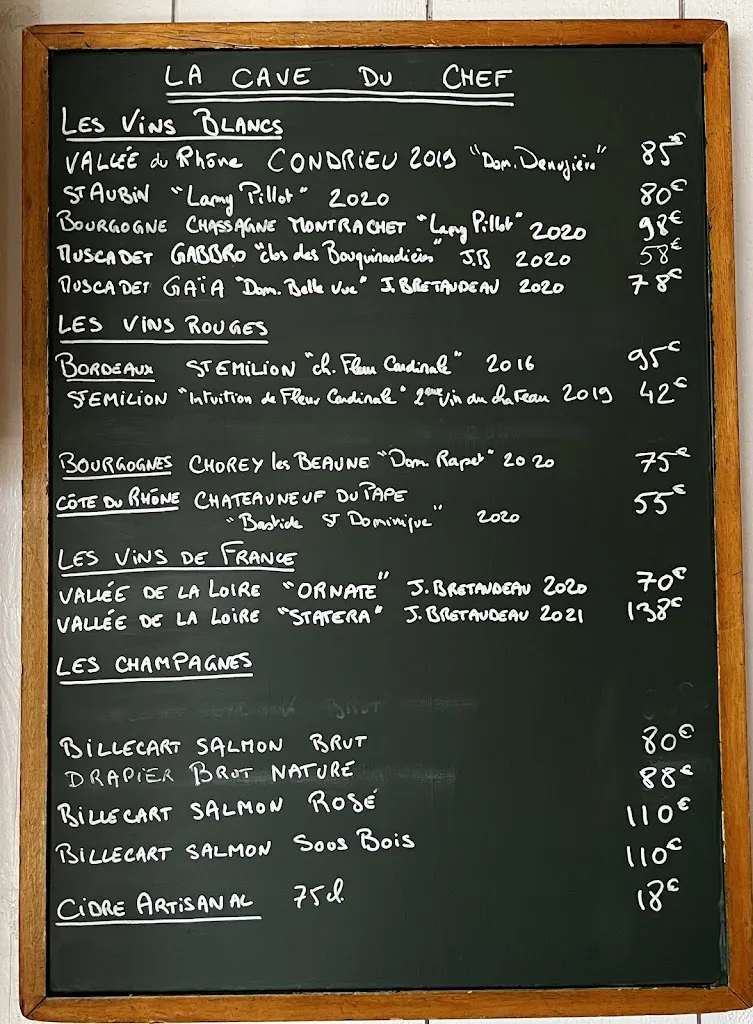 LA CAVE DU CHEF
LES VINS BLANCS
VALLÉE du Rhône CONDRIEU 2019 "Dom. " 85€
ST AUBIN "Lamy Pillot" 2020 80€
BOURGOGNE CHASSAGNE MONTRACHET "Lamy Pillot" 2020 98€
MUSCADET GABBRO "clos des Bouquinardières" J.B 2020 58€
MUSCADET GAÏA "Dom. Belle Vue" J. BRETAUDEAU 2020 78€
LES VINS ROUGES
BORDEAUX ST EMILION "ch. Fleur Cardinale" 2016 95€
ST EMILION "Intuition de Fleur Cardinale" 2eme vin du chateau 2019 42€
BOURGOGNES CHOREY les BEAUNE "Dom. Rapet" 2020 75€
CÔTE DU RHÔNE CHATEAUNEUF DU PAPE 55€
"Bastide ST Dominique" 2020
LES VINS DE FRANCE
VALLÉE DE LA LOIRE "ORNATE" J. BRETAUDEAU 2020 70€
VALLÉE DE LA LOIRE "STATERA" J. BRETAUDEAU 2021 138€
LES CHAMPAGNES
BILLECART SALMON BRUT 80€
DRAPIER BRUT NATURE 88€
BILLECART SALMON ROSÉ 110€
BILLECART SALMON SOUS BOIS 110€
CIDRE ARTISANAL 75cl. 18€